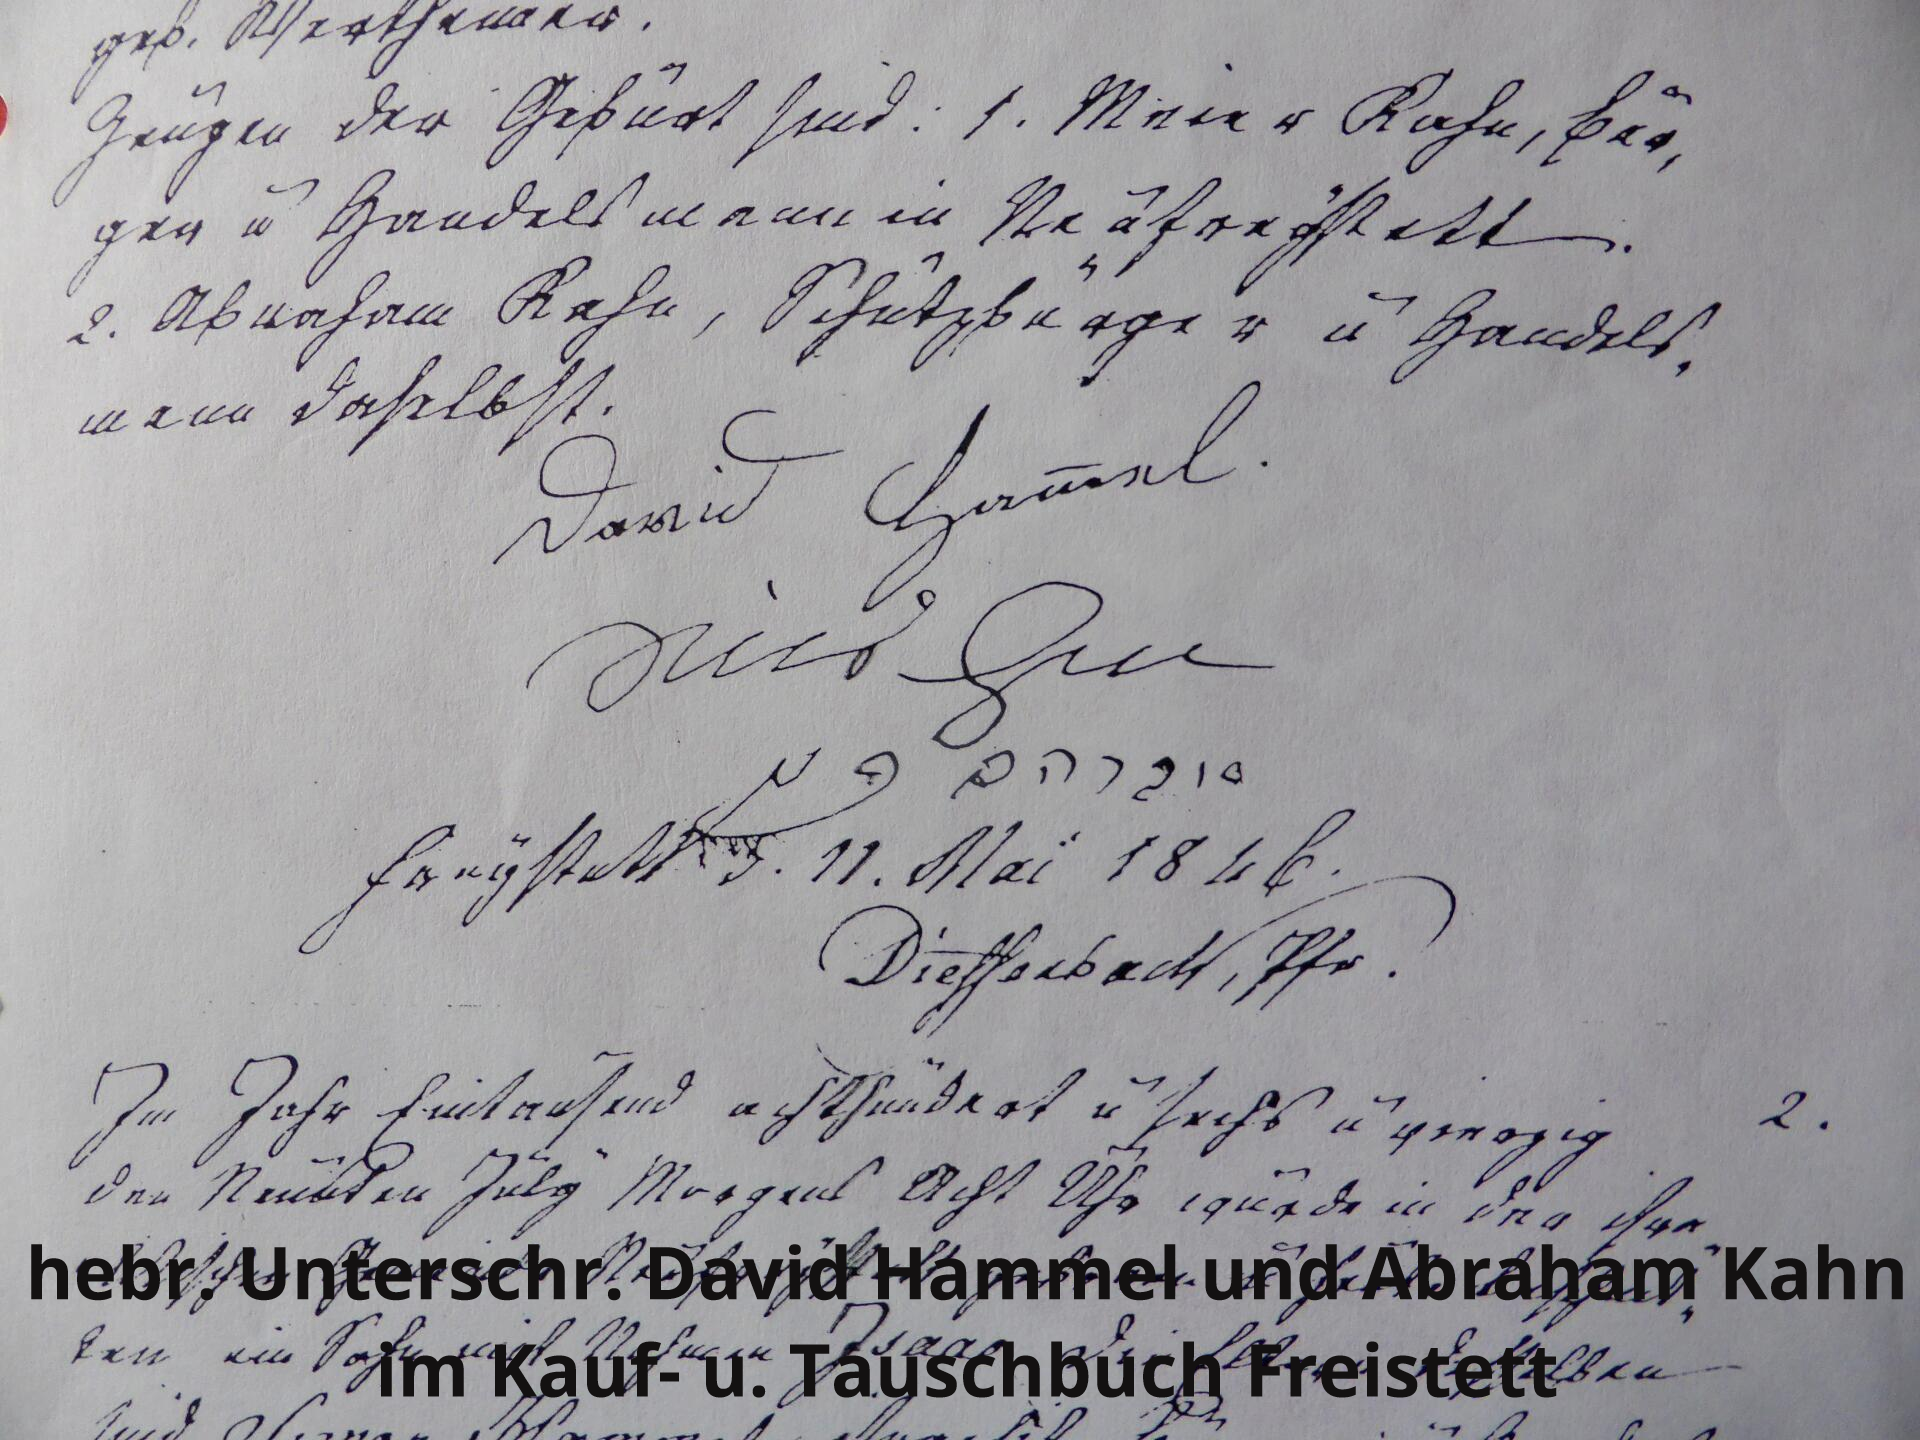 geb. Wertheimer.
Zeugen der Geburt sind: 1. Meier Kahn, Bür,
ger u Handelsmann in Neufreystett.
2. Abraham Kahn, Schutzbürger u Handels,
mann daselbst.
David Hammel.
אברהם קאן
Freystett d. 11. Mai 1846.
Dieffenbach, Pfr.
Im Jahr Eintausend achthundert u sechs u vierzig 2.
den Neunten July Morgens Acht Uhr wurde in der isra
hebr. Unterschr. David Hammel und Abraham Kahn
ten ein Sohn mit Namen Isaac. Die desselben
im Kauf- u. Tauschbuch Freistett
sind